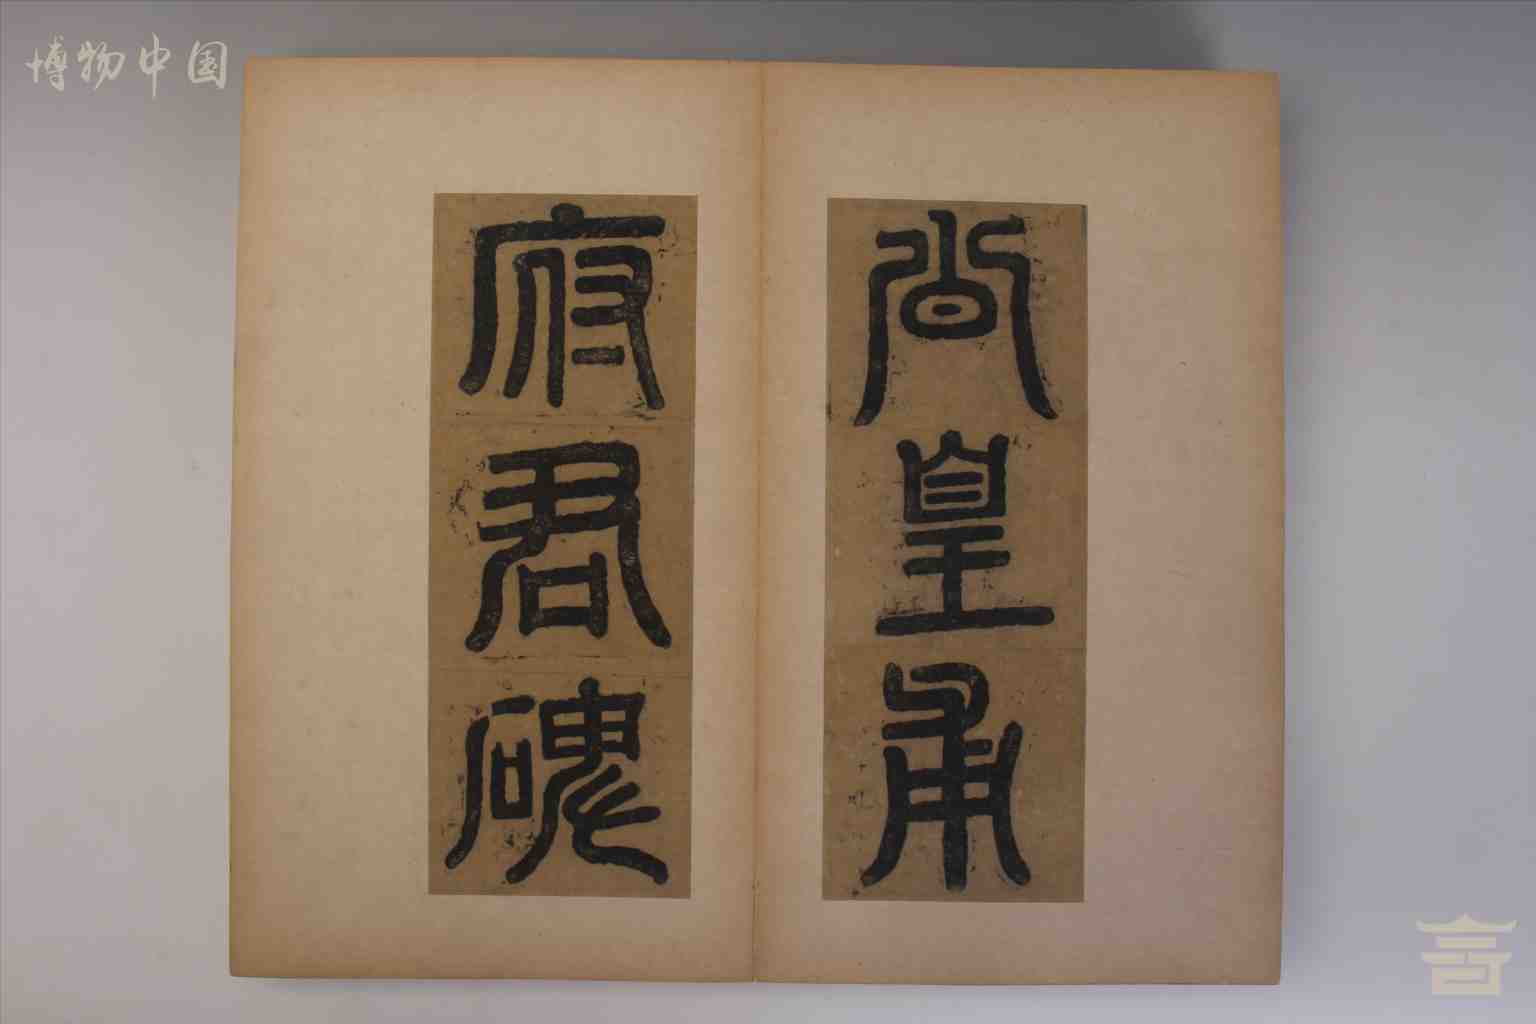 博物中国
公皇甫
府君碑